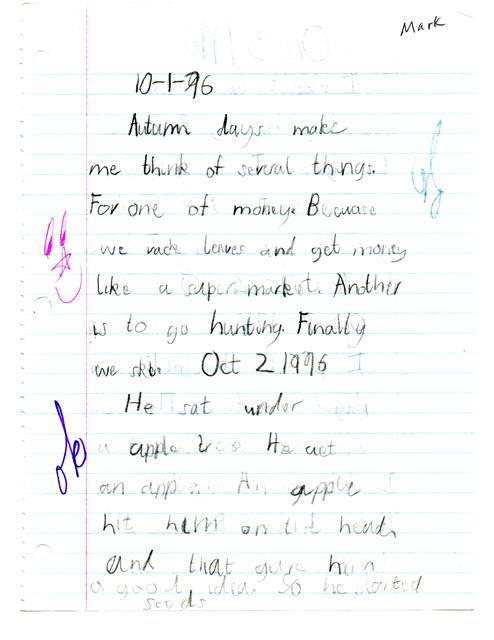 Mark
10-1-96
Autumn days make
me think of several things.
For one of money. Becuase
we rack leaves and get money
like a super market. Another
is to go hunting. Finally
we Oct 2 1996
He sat under
a apple tree He
an apple. An apple
hit him on head,
and that gave him
a good idea. So he started
seeds
ok